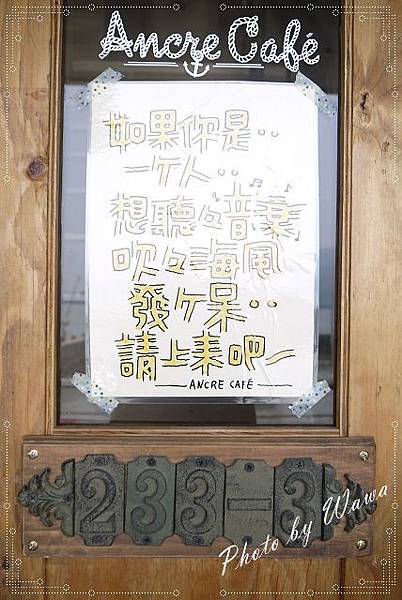 Ancre Café
如果你是..
一ケ人..
想聽々音樂
吹々海風
發ケ呆..
請上來吧~
ANCRE CAFÉ
233-3
Photo by Wawa